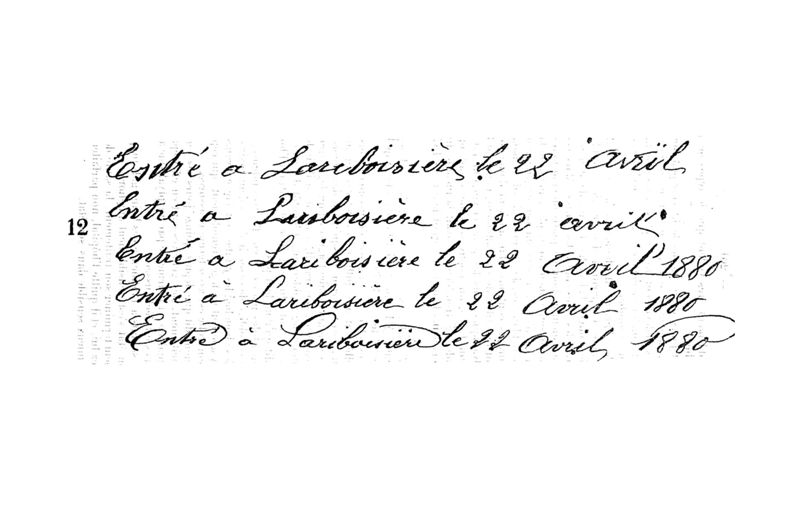 Entré a Lariboisière, le 22 Avril
Entré a Lariboisière le 22 avril
12
Entré a Lariboisière le 22 Avril 1880
Entré à Lariboisière le 22 Avril 1880
Entré à Lariboisière le 22 Avril 1880